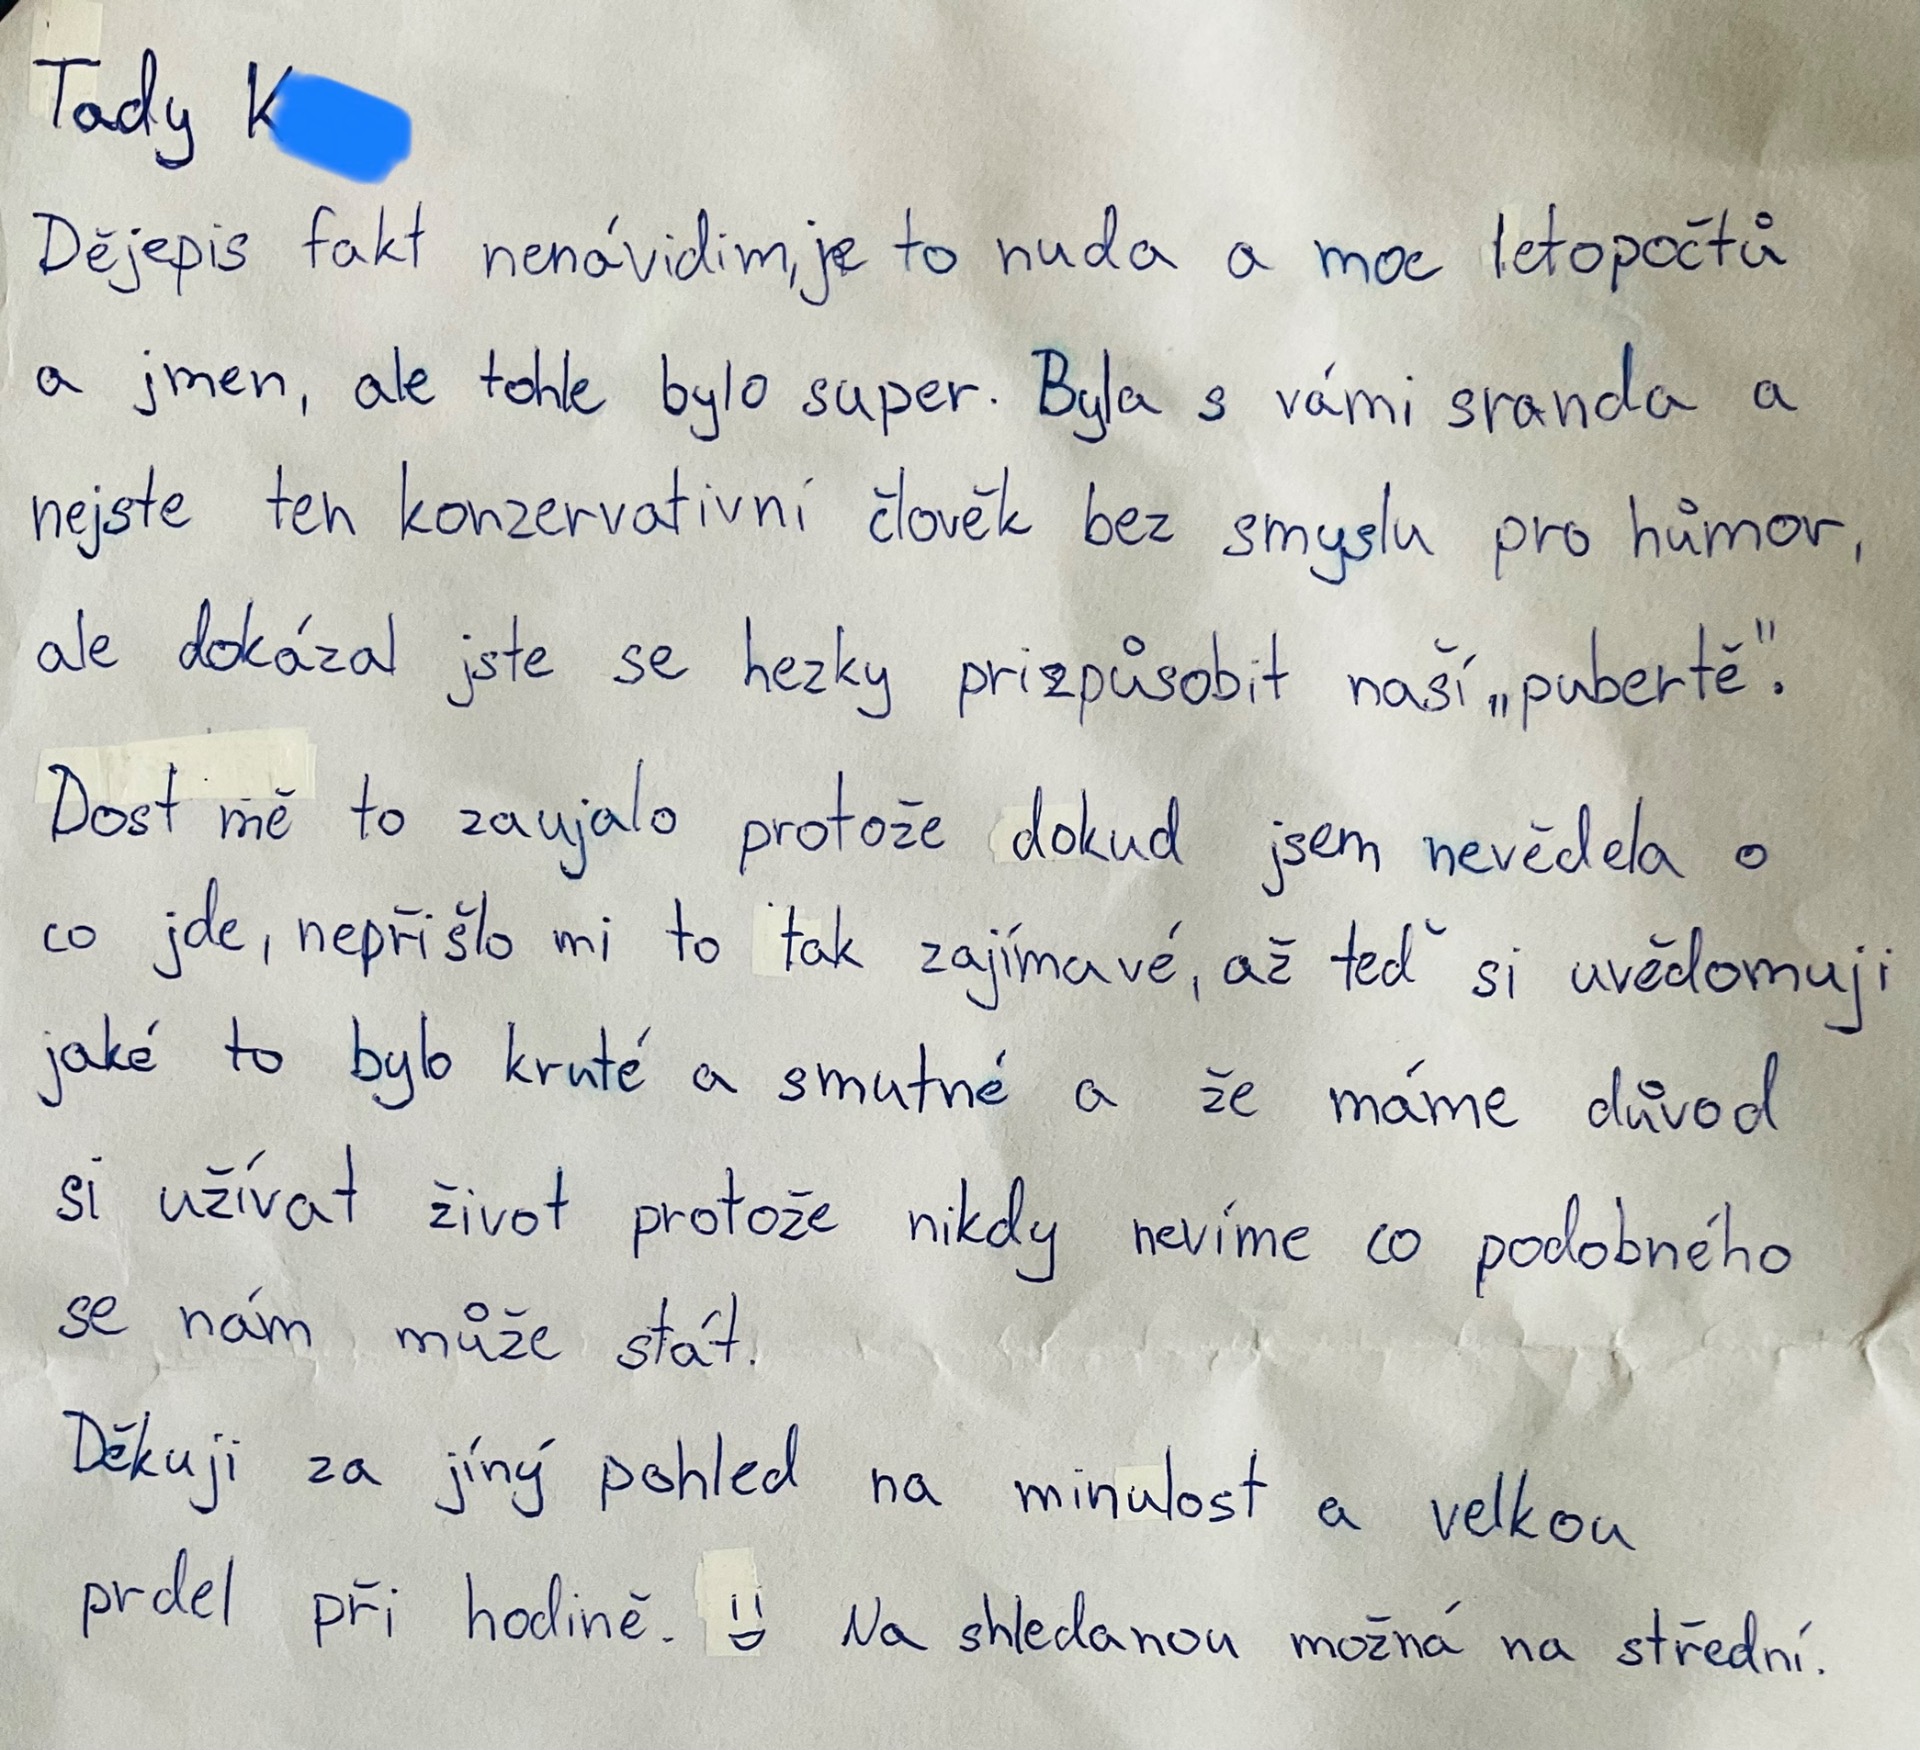 Tady K
Dějepis fakt nenávidim, je to nuda a moc letopočtů
a jmen, ale tohle bylo super. Byla s vámi sranda a
nejste ten konzervativní člověk bez smyslu pro hůmor,
ale dokázal jste se hezky prizpůsobit naší „pubertě".
Dost mě to zaujalo protože dokud jsem nevěděla o
co jde, nepřišlo mi to tak zajímavé, až teď si uvědomuji
jaké to bylo kruté a smutné a že máme důvod
si užívat život protože nikdy nevíme co podobného
se nám může stát.
Děkuji za jíný pohled na minulost a velkou
prdel při hodině. Na shledanou možná na střední.